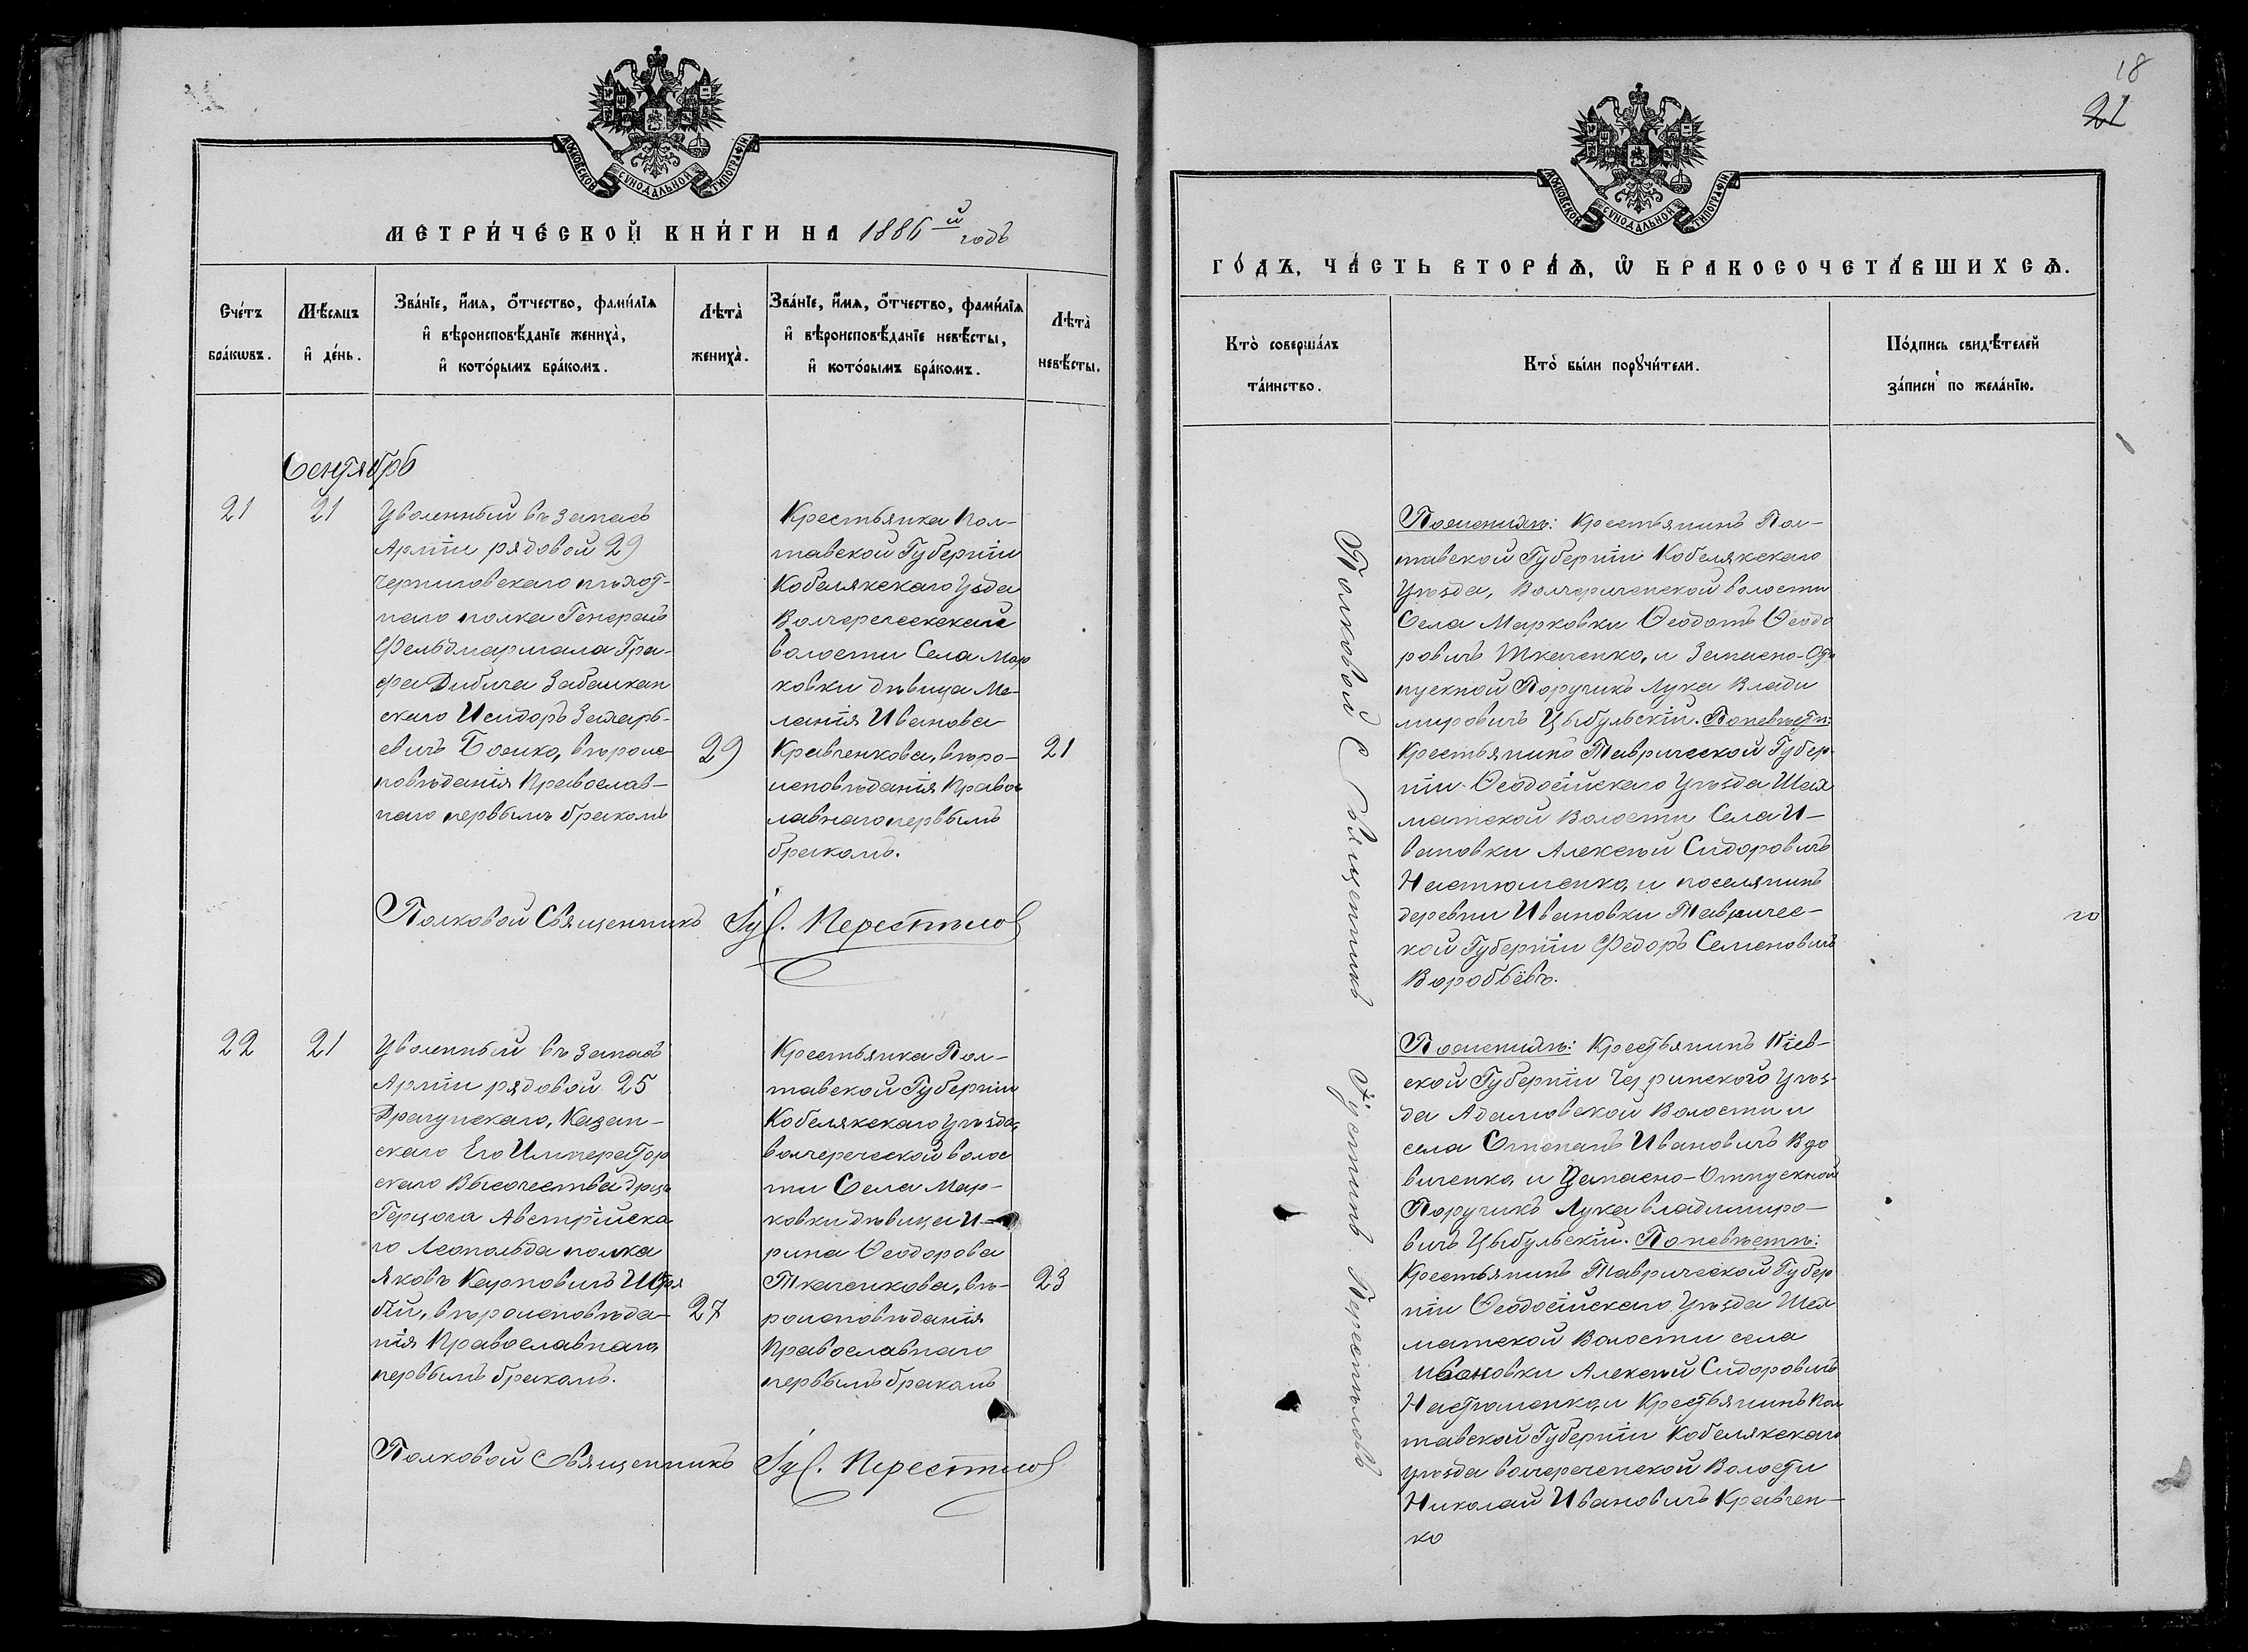 МОСКОВСКОЙ СѴНОДАЛЬНОЙ ТИПОГРАФІИ.
МЕТРИ́ЧЕСКОЙ КНИ́ГИ НА 1886й годъ
Сче́тъ бра́кѡвъ.
Мѣ́сяцъ и҆ де́нь.
Зва́нїе, и҆́мѧ, ѻ҆́тчество, фами́лїѧ
и҆ вѣроисповѣ́данїе жениха̀,
и҆ кото́рымъ бра́комъ.
Лѣта̀ жениха̀.
Зва́нїе, и҆́мѧ, ѻ҆́тчество, фами́лїѧ
и҆ вѣроисповѣ́данїе невѣ́сты,
и҆ кото́рымъ бра́комъ.
Лѣта̀ невѣ́сты.
Сентябрь
21
21
Уволенный въ запасъ
Арміи рядовой 29
Черниговскаго пѣхот-
наго полка Генералъ
Фельдмаршала Гра-
фа Дибича Забалкан
скаго Исидоръ Захарь-
евичъ Бойко, вѣроис-
повѣданія Православ-
наго первымъ бракомъ
29
Крестьянка Пол-
тавской Губерніи
Кобелякскаго Уѣзда
волости Села Мар
ковки дѣвица Ме-
ланія Иванова
Кравченкова, вѣро-
исповѣданія Правос
лавнаго первымъ
бракомъ.
21
Полковой Священникъ Іус. Перестѣлов
22
21
Уволенный въ запасъ
Арміи рядовой 25
Драгунскаго, Казан-
скаго Его Император
скаго Высочества Эрцъ
Герцога Австрійска
го Леопольда полка
Яковъ Карповичъ
бій, вѣроисповѣда-
нія Православнаго,
первымъ бракомъ.
27
Крестьянка Пол-
тавской Губерніи
Кобелякскаго Уѣзда,
волчереческой волос
ти Села Мар-
ковки дѣвица И-
рина Ѳеодорова
Ткаченкова, вѣ-
роисповѣданія
Православнаго
первымъ бракомъ
23
Полковой Священникъ Іус. Перестѣлов
18
21
МОСКОВСКОЙ СѴНОДАЛЬНОЙ ТИПОГРАФІИ.
ГО́ДЪ, ЧА́СТЬ ВТОРА́Ѧ, Ѿ БРАКОСОЧЕТА́ВШИХСѦ.
Кто̀ соверша́лъ та́инство.
Кто̀ бы́ли порꙋчи́тели.
По́дпись свидѣ́телей
за́писи по жела́нїю.
Полковой Священникъ Іустинъ Перестѣловъ
По женихѣ: Крестьянинъ Пол-
тавской Губерніи Кобелякскаго
Уѣзда, Волчереченской волости
Села Марковки Ѳеодотъ Ѳеодо
ровичъ Ткаченко, и Запасно-От
пускной Поручикъ Лука Влади
мировичъ Цыбульскій. По невѣстѣ:
Крестьянинъ Таврической Губер-
ніи Ѳеодосійскаго Уѣзда Шах
матской Волости Села И-
вановки Алексѣй Сидоровичъ
Настюшенко, и поселянинъ
деревни Ивановки Тавричес-
кой Губерніи Федоръ Семеновичъ
Воробьёвъ.
го
По женихѣ: Крестьянинъ Кіев-
ской Губерніи Чегринского Уѣз-
да Адамовской Волости и
села Степанъ Ивановичъ Вдо
виченко, и Запасно-Отпускной
Поручикъ Лука Владимиро-
вичъ Цыбульскій. По невѣстѣ:
Крестьянинъ Таврической Губер
ніи Ѳеодосійскаго Уѣзда Шах
матской Волости села
Ивановки Алексѣй Сидоровичъ
Настюшенко, и Крестьянинъ Пол
тавской Губерніи Кобелякскаго
уѣзда волчереченской Волости
Николай Ивановичъ Кравчен-
ко